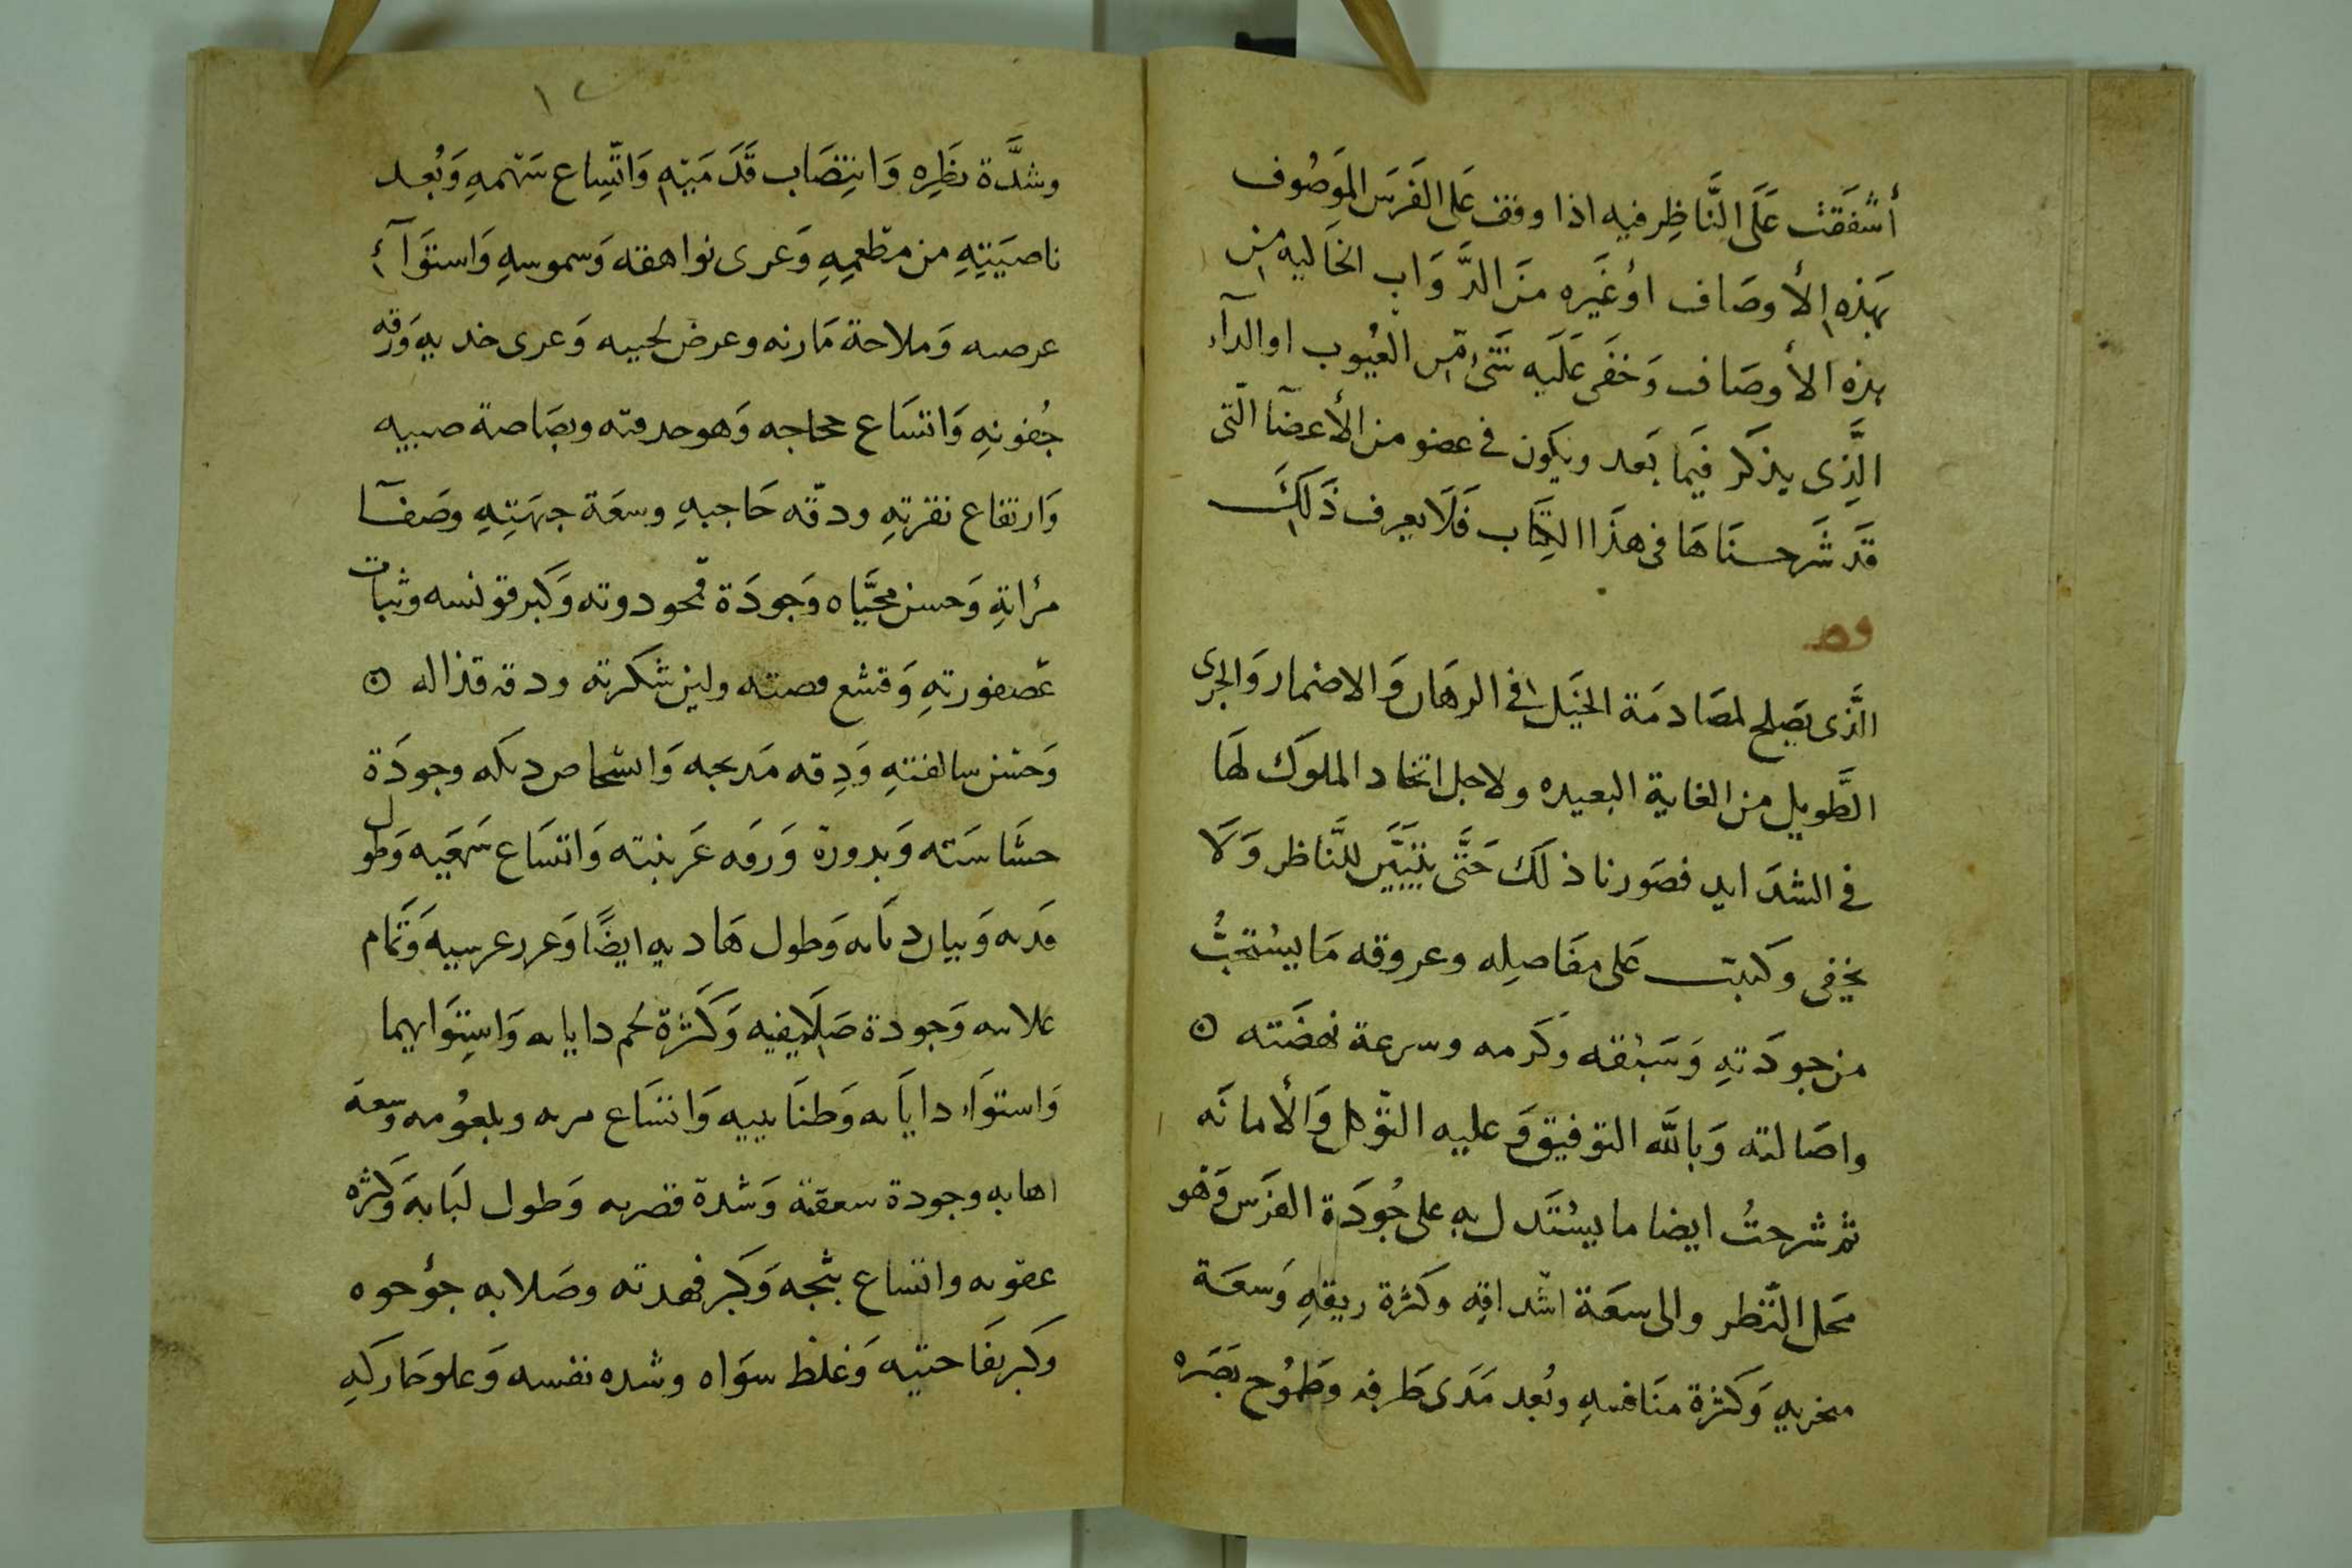 أشفقت على الناظر فيه اذا وقف على الفرس الموصوف
بهذه الأوصاف او غيره من الدواب الخاليه من
هذه الأوصاف وخفى عليه شئ من العيوب او الدآء
الذى يذكر فيما بعد ويكون فى عضو من الأعضآ التى
قد شرحناها فى هذا الكتاب فلا يعرف ذلك
الذى يصلح لمصادمة الخيل فى الرهان والاضمار والجرى
الطويل من الغاية البعيده ولاجل اتخاد الملوك لها
فى الشدايد فصورنا ذلك حتى يتبين للناظر ولا
يخفى وكتبت على مفاصله وعروقه ما يستحب
من جودته وسبقه وكرمه وسرعة نهضته ن
واصالته وبالله التوفيق وعليه التوكل والأمانه
ثم شرحت ايضا ما يستدل به على جودة الفرس وهو
محل النظر والى سعة اشداقه وكثرة ريقه وسعة
منخريه وكثرة منافسه وبعد مدى طرفه وطموح بصره
١٢
وشدة نظره وانتصاب قدميه واتساع سهمه وبعد
ناصيته من مطعمه وعرى نواهقه وسموسه واستوآئ
عرصه وملاحة مارنه وعرض لحييه وعرى خديه ورقه
جفونه واتساع محاجه وهو حدقته وبصاصة صبييه
وارتفاع نقرته ودقه حاجبه وسعة جبهته وصفآ
مرأته وحسن محياه وجودة قمحودوته وكبر قونسه وثبات
عصفورته وقشع قصته ولين شكرته ودقه قذاله ن
وحسن سالفته ودقه مذبحه وجودة
حشاسته واتساع سمعيه وطول
وطول هاديه ايضا وتمام
وجودة صلايفيه وكثرة لحم دايايه واستوايهما
واستواء داياه وطنابيبه واتساع وبلعومه وسعة
اهابه وجودة وشدة قصريه وطول لبابه وكثره
واتساع ثجه وكبر فهدته وصلابه جؤجوه
وكبر نفاحتيه وغلظ سواه وشده نفسه وعلو حماركه